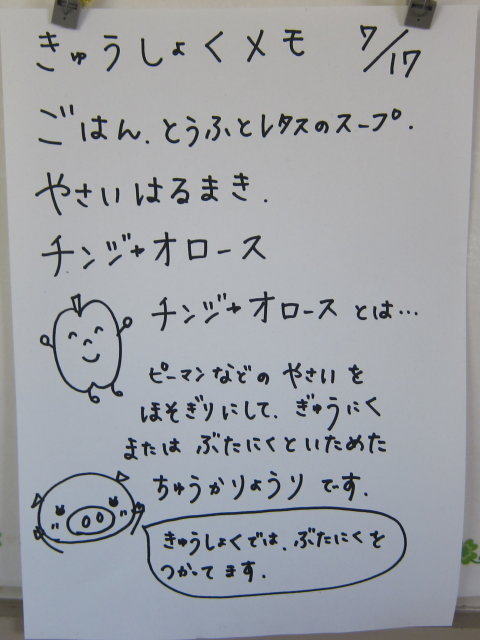 きゅうしょくメモ 7/17
ごはん.とうふとレタスのスープ.
やさいはるまき.
チンジャオロース
チンジャオロースとは…
ピーマンなどの やさいを
ほそぎりにして、ぎゅうにく
または ぶたにくといためた
ちゅうかりょうりです.
きゅうしょくでは、ぶたにくを
つかってます.